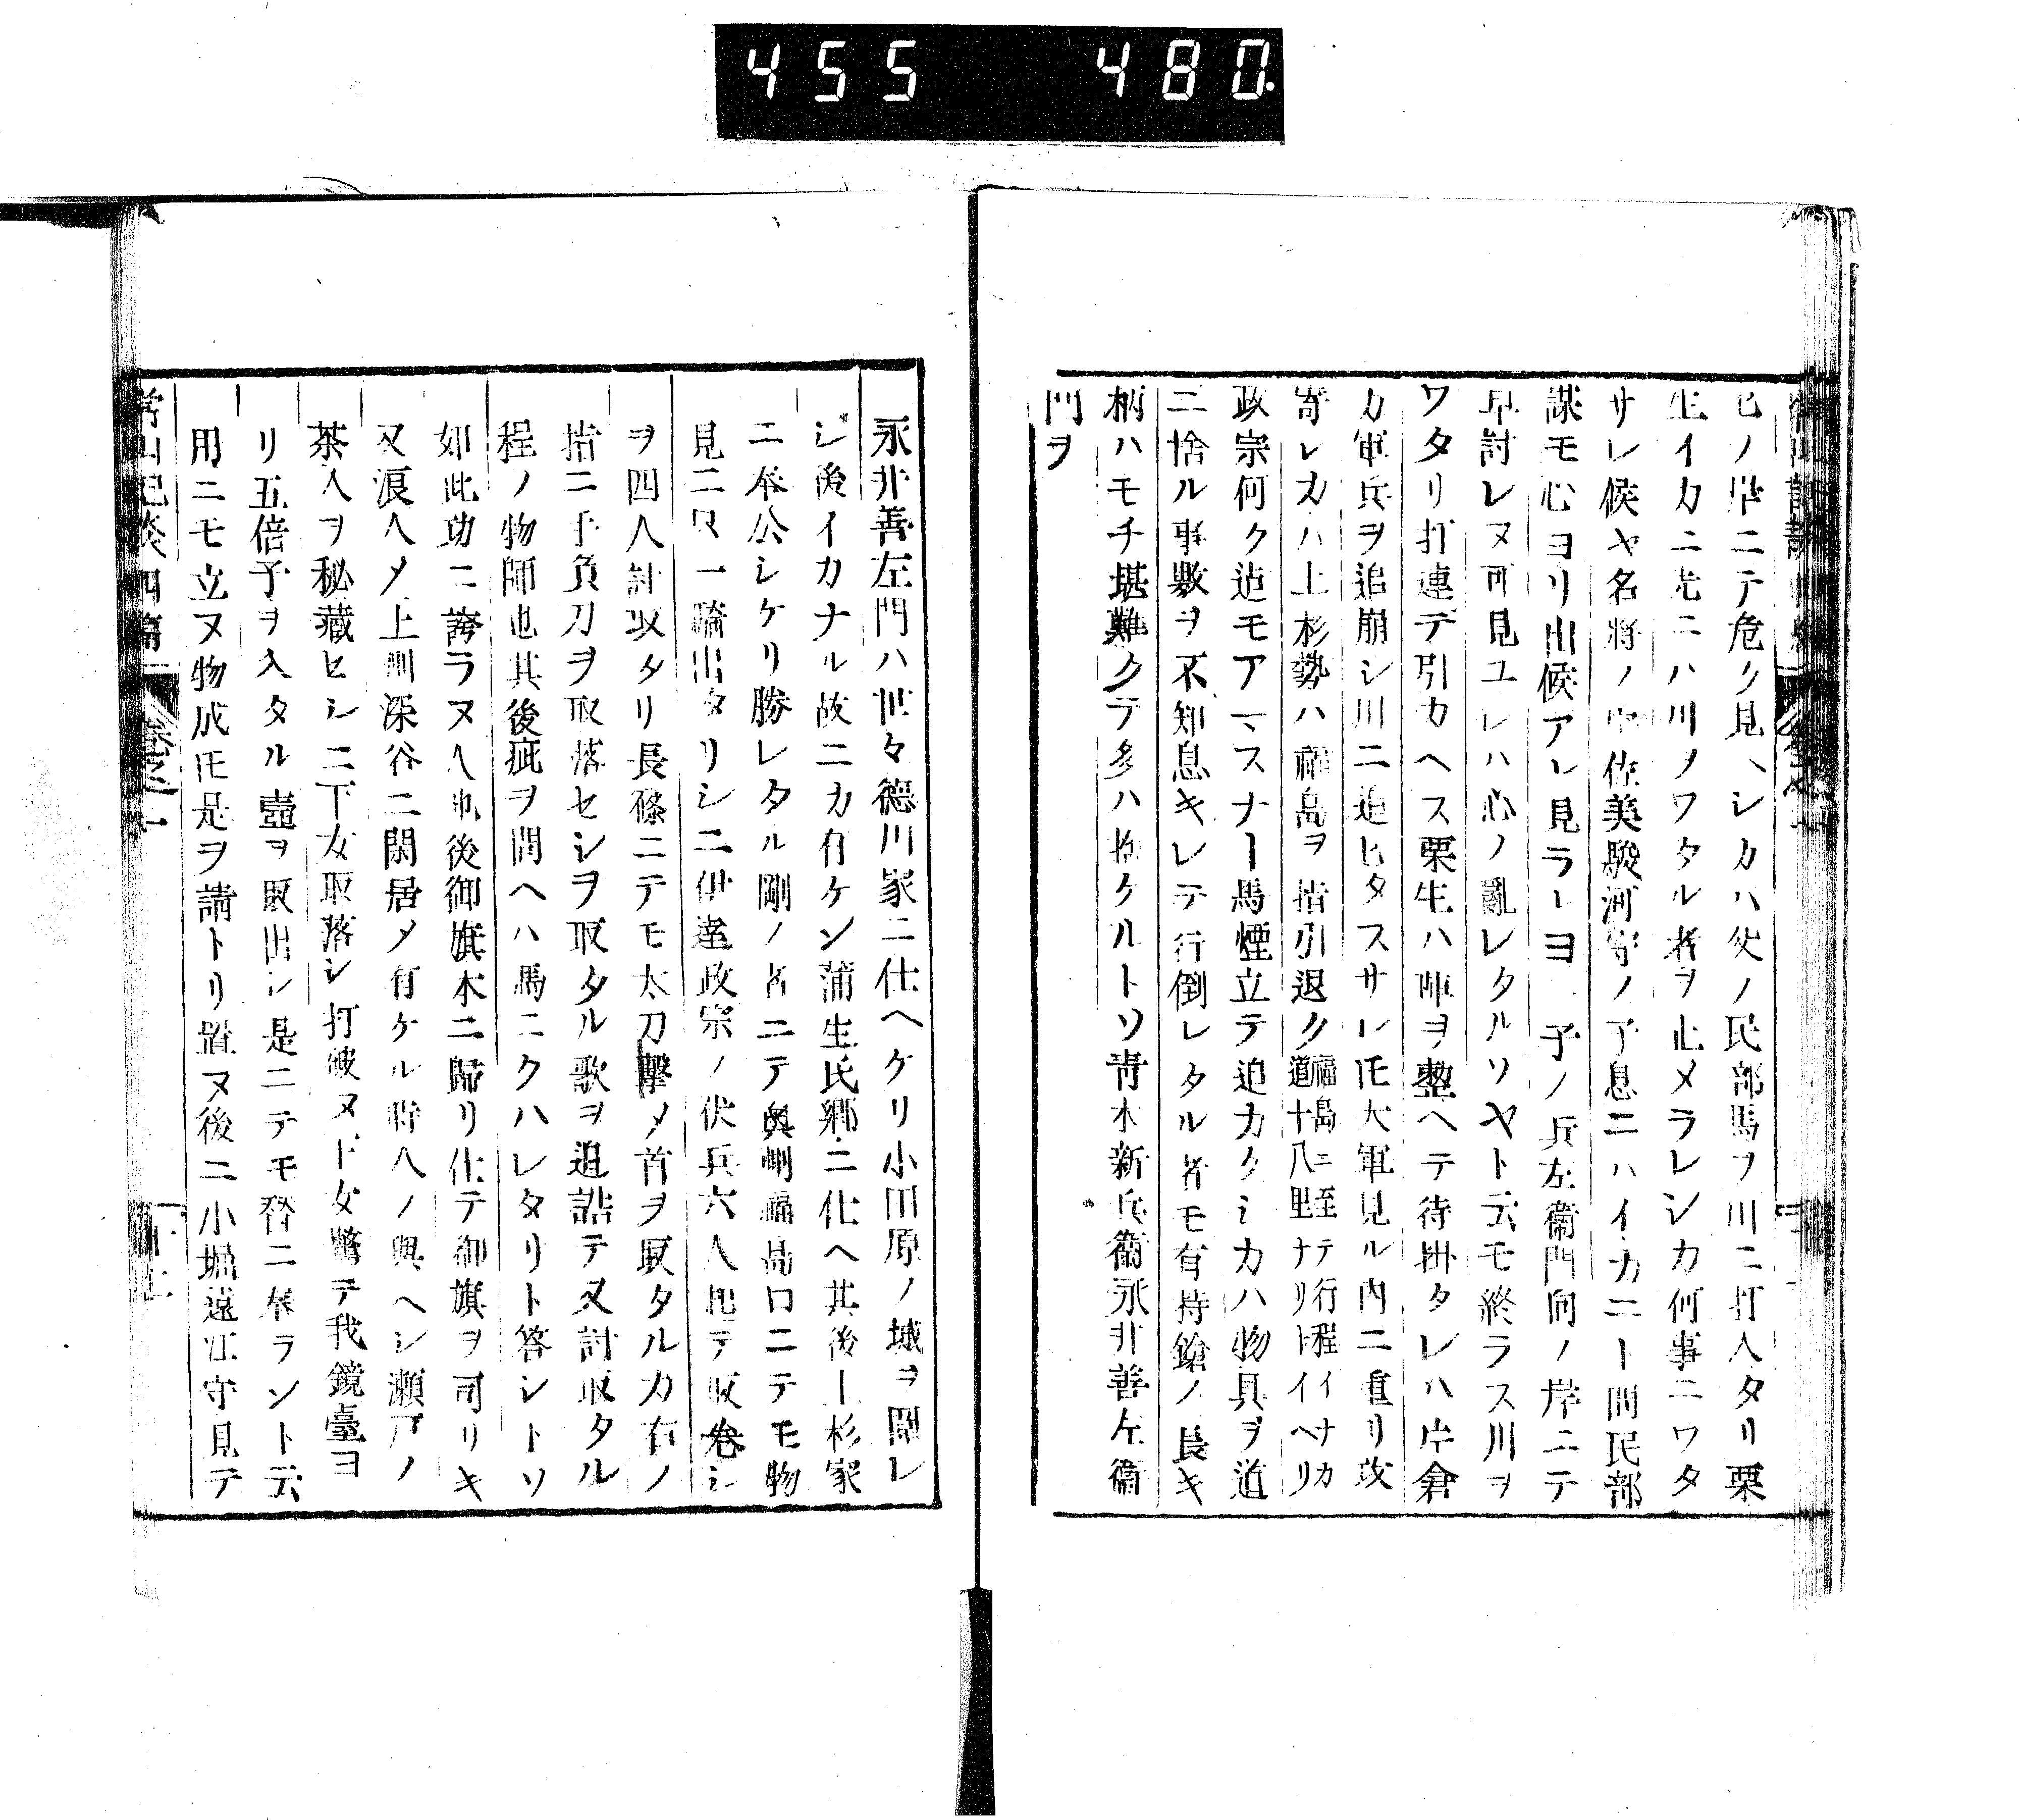 455 480
ヒノ岸ニテ危ク見ヘシカハ父ノ民部馬ヲ川ニ打入タリ栗
生イカニ先ニハ川ヲワタル者ヲ止メラレシカ何事ニワタ
サレ候ヤ名將ノ宇佐美駿河守ノ子息ニハイカニト問民部
謀モ心ヨリ出候アレ見ラレヨ 子ノ兵左衞門向ノ岸ニテ
早討レヌ可見ユレハ心ノ亂レタルソヤト云モ終ラス川ヲ
ワタリ打連デ引カヘス栗生ハ陣ヲ整ヘテ待掛タレハ片倉
カ軍兵ヲ追崩シ川ニ追ヒタスサレ𪜈大軍見ル内ニ重リ攻
寄レカハ上杉勢ハ福島ヲ指引退ク福島ニ至テ行程イナカ
道十八里ナリトイヘリ
政宗何ク迠モアマスナト馬煙立テ追カクシカハ物具ヲ道
ニ捨ル事數ヲ不知息キレテ行倒レタル者モ有持鎗ノ長キ
柄ハモチ堪難クテ多ハ捨ケルトソ靑木新兵衞永井善左衞
門ヲ
永井善左門ハ世々德川家ニ仕ヘケリ小田原ノ城ヲ開レ
シ後イカナル故ニカ有ケン蒲生氏郷ニ仕ヘ其後上杉家
ニ奉公シケリ勝レタル剛ノ者ニテ奧州福島口ニテモ物
見ニ只一騎出タリシニ伊達政宗ノ伏兵六人起テ取卷シ
ヲ四人討取タリ長篠ニテモ太刀擊メ首ヲ取タルカ右ノ
指ニ手負刀ヲ取落セシヲ取タル敵ヲ追詰テ又討取タル
程ノ物師也其後疵ヲ問ヘハ馬ニクハレタリト答シトソ
如此功ニ誇ラヌ人也後御旗本ニ歸リ仕テ御旗ヲ司リキ
又浪人メ上州深谷ニ閑居メ有ケル時人ノ與ヘシ瀬戸ノ
茶入ヲ秘藏セシニ下女取落シ打破ヌ下女驚テ我鏡臺ヨ
リ五倍子ヲ入タル壺ヲ取出シ是ニテモ替ニ奉ラント云
用ニモ立ヌ物成𪜈是ヲ請トリ置ヌ後ニ小堀遠江守見テ
常山紀談四篇 卷之一